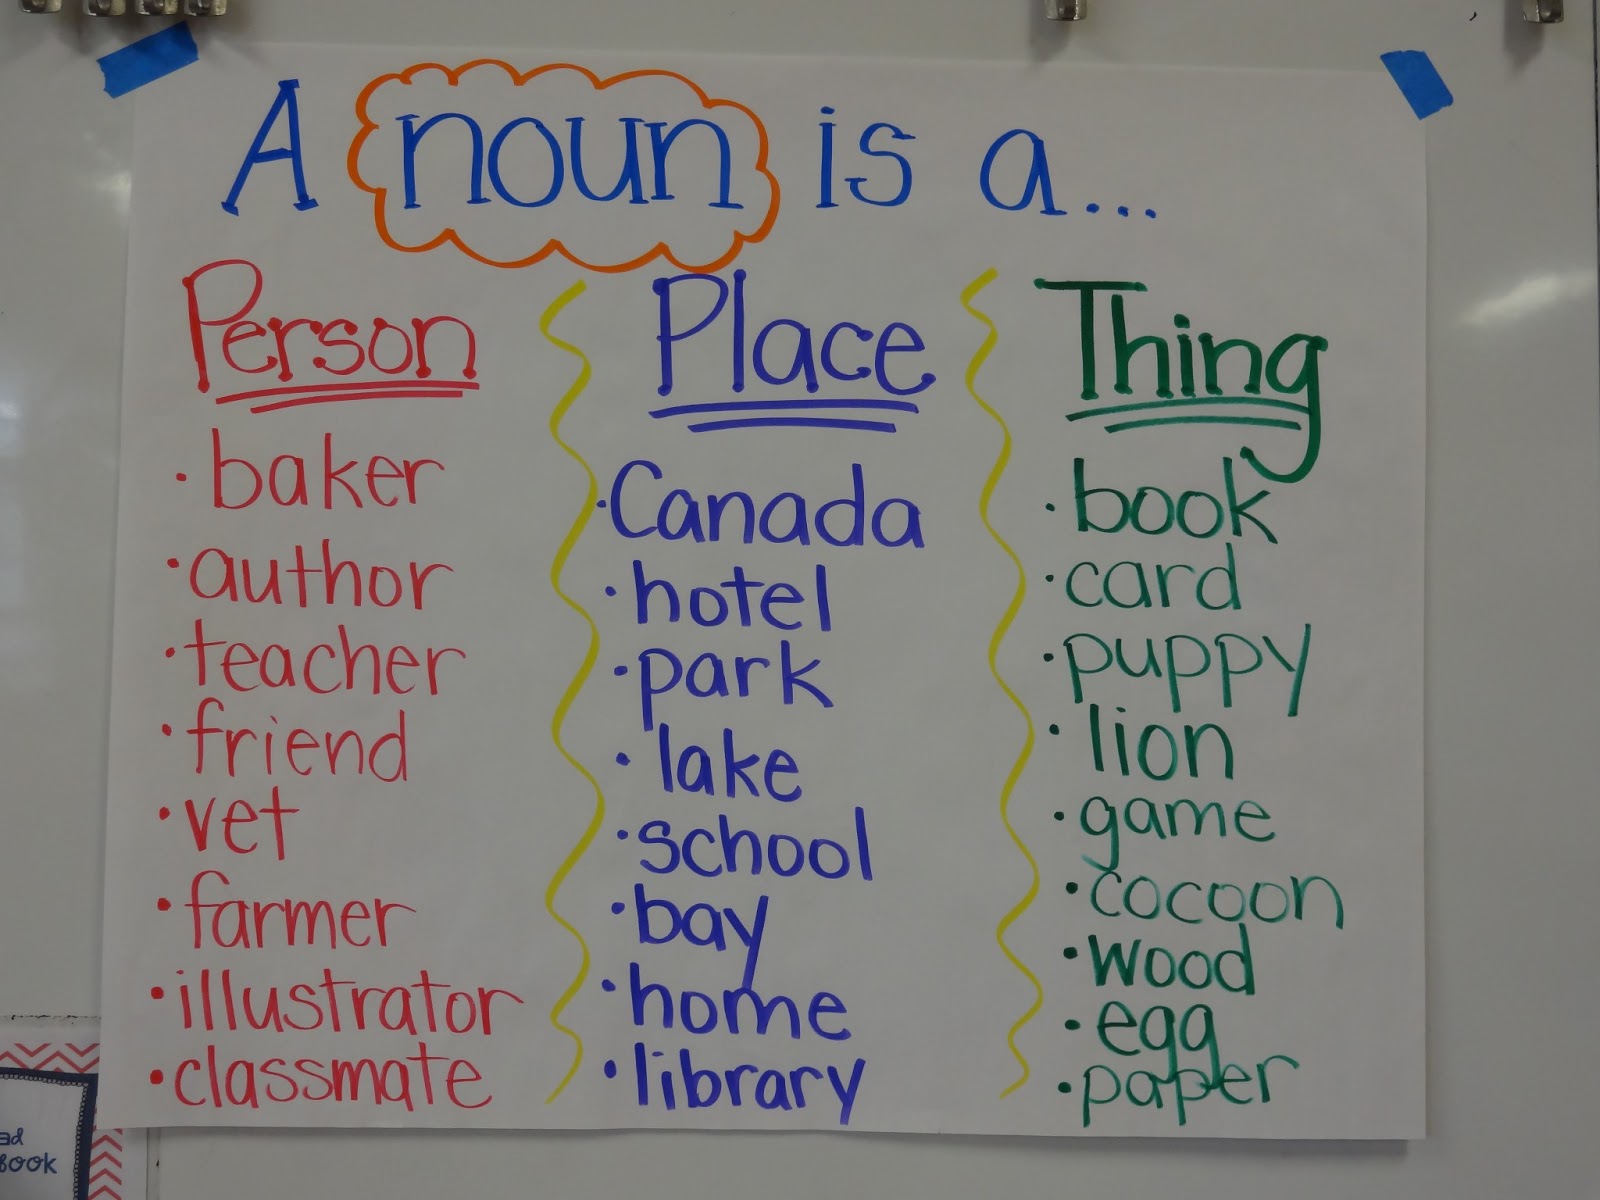 A noun is a...
Person
· baker
· author
· teacher
· friend
· vet
· farmer
· illustrator
· classmate
Place
· Canada
· hotel
· park
· lake
· school
· bay
· home
· library
Thing
· book
· card
· puppy
· lion
· game
· cocoon
· wood
· egg
· paper